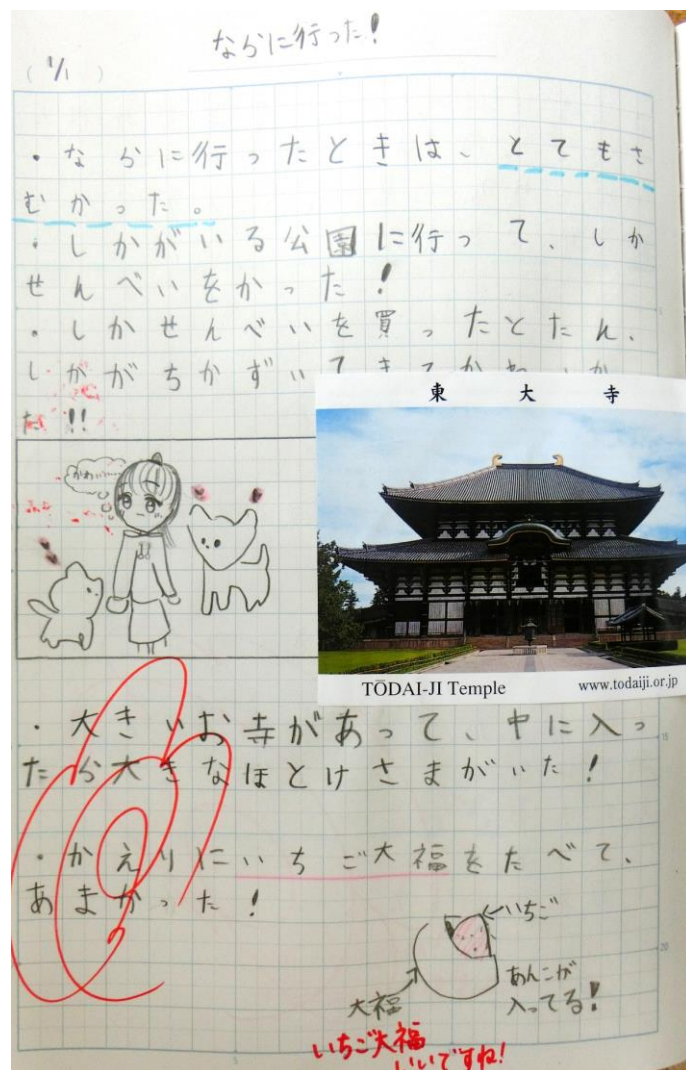 ならに行った!
(1/1)
・ならに行ったときは、とてもさ
むかった。
・しかがいる公園に行って、しか
せんべいをかった!
・しかせんべいを買ったとたん、
しかがちかずいてきてかわいか
た!!
東大寺
かわいい…
TŌDAI-JI Temple
www.todaiji.or.jp
・大きいお寺があって、中に入っ
たら大きなほとけさまがいた!
・かえりにいちご大福をたべて、
あまかった!
いちご
あんこが
入ってる!
大福
いちご大福
いいですね!
15
20